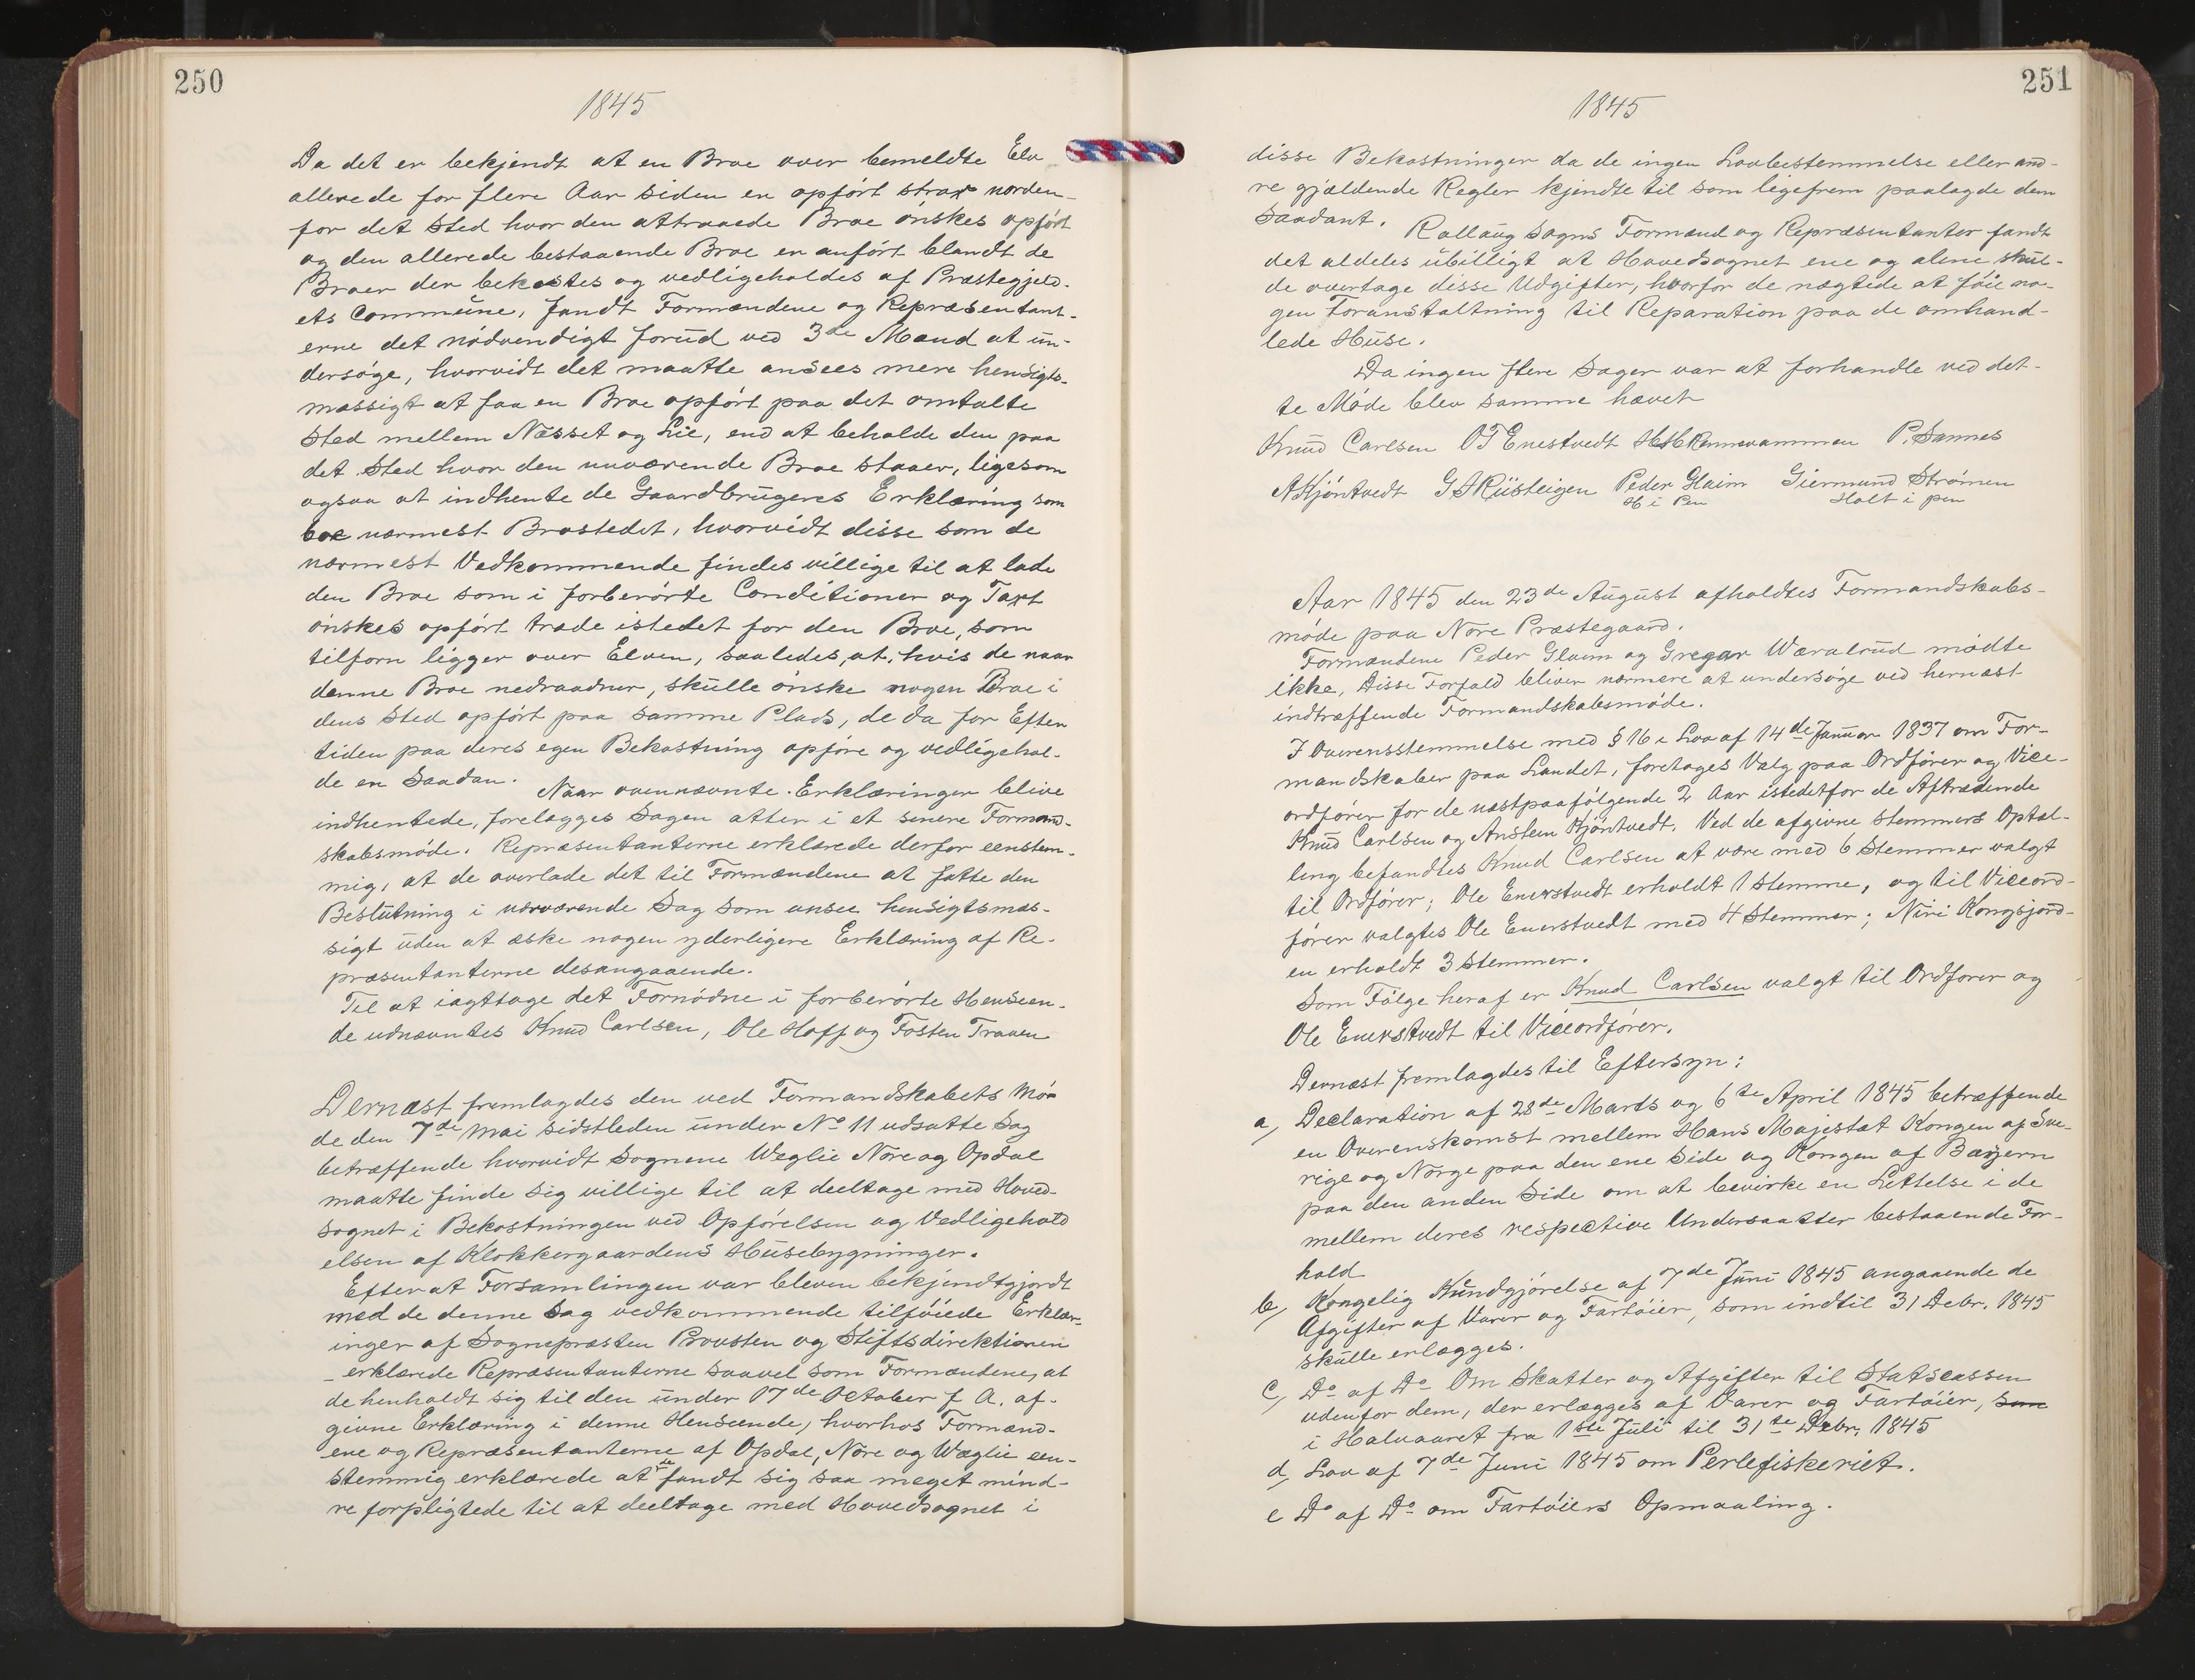 250
1845
Da det er bekjendt at en Broe over bemeldte Elv
allerede for flere Aar siden er opført strax norden-
for det Sted hvor den attraaede Broe ønskes opført
og den allerede bestaaende Broe er anført blandt de
Broer der bekostes og vedligeholdes af Præstegjeld-
ets Commüne, fandt Formændene og Repræsentant-
erne det nødvendigt forud ved 3de Mænd at ün-
dersøge, hvorvidt det maatte ansees mere hensigts-
mæssigt at faa en Broe opført paa det omtalte
Sted mellem Næsset og Lie, end at beholde den paa
det Sted hvor den nuværende Broe staaer, ligesom
ogsaa at indhente de Gaardbrugeres Erklæring som
boe nærmest Brostedet, hvorvidt disse som de
nærmest Vedkommende findes villige til at lade
den Broe som i forberørte Conditioner og Taxt
ønskes opført træde istedet for den Broe, som
tilforn ligger over Elven, saaledes, at, hvis de naar
denne Broe nedraadner, skülle ønske nogen Broe i
dens Sted opført paa samme Plads, de da for Efter
tiden paa deres egen Bekostning opføre og vedligehol-
de en Saadan. Naar ovennævnte Erklæringer blive
indhentede, forelægges Sagen atter i et senere Formand-
skabsmøde. Repræsentanterne erklærede derfor eenstem-
mig, at de overlade det til Formændene at fatte den
Beslütning i nærværende Sag som ansee hensigtsmæs-
sigt üden at æske nogen yderligere Erklæring af Re-
præsentanterne desangaaende.
Til at iagttage det Fornødne i forberørte Henseen-
de udnævntes Knud Carlsen, Ole Hoff og Tosten Traaen
Dernæst fremlagdes den ved Formandskabets Mø-
de den 7de Mai sidstleden ünder No 11 udsatte Sag
betræffende hvorvidt Sognene Weglie Nore og Opdal
maatte finde sig villige til at deeltage med Hoved-
sognet i Bekostningen ved Opførelsen og Vedligehold
elsen af Klokkergaardens Hüsebygninger.
Efter at Forsamlingen var bleven bekjendtgjordt
med de denne Sag vedkommende tilføiede Erklær-
inger af Sognepræsten Provsten og Stiftsdirektionen
erklærede Repræsentanterne saavel som Formændene, at
de henholdt sig til den ünder 17de October f A. af-
givne Erklæring i denne Henseende, hvorhos Formænd-
ene og Repræsentanterne af Opdal, Nore og Wæglie een-
stemmig erklærede at de fandt sig saa meget mind-
re forpligtede til at deeltage med Hovedsognet i
251
1845
disse Bekostninger da de ingen Lovbestemmelse eller and-
re gjældende Regler kjendte til som ligefrem paalagde dem
saadant. Rollaug Sogns Formænd og Repræsentanter fandt
det aldeles übilligt at Hovedsognet ene og alene skul-
de overtage disse Udgifter, hvorfor de nægtede at føie no-
gen Foranstaltning til Reparation paa de omhand-
lede Hüse.
Da ingen flere Sager var at forhandle ved det-
te Møde blev samme hævet
Knüd Carlsen OT Enestvedt P. Sannes
AKjøntvedt Peder Glaim Giermund Strømen
H i Pen Holt i pen
Aar 1845 den 23de August afholdtes Formandskabs-
møde paa Nore Præstegaard.
Formændene Peder Glaim og Gregar Wæralrud mødte
ikke, Disse Forfald bliver nærmere at undersøge ved hernæst
indtræffende Formandskabsmøde.
I Overensstemmelse med § 16 i Lov af 14de Januar 1837 om For-
mandskaber paa Landet, foretages Valg paa Ordfører og Vice-
ordfører for de næstpaafølgende 2 Aar istedetfor de Aftrædende
Knud Carlsen og Ansten Kjøntvedt. Ved de afgivne Stemmers Optæl-
ling befandtes Knud Carlsen at være med 6 Stemmer valgt
til Ordfører; Ole Enerstvedt erholdt 1 Stemme, og til Viceord-
fører valgtes Ole Enerstvedt med 4 Stemmer; Niri Kongsjord-
en erholdt 3 Stemmer.
Som Følge heraf er Knud Carlsen valgt til Ordfører og
Ole Enerstvedt til Viceordfører.
Dernæst fremlagdes til Eftersyn:
a, Declaration af 28de Marts og 6te April 1845 betræffende
en Overenskomst mellem Hans Majestæt Kongen af Sve-
rige og Norge paa den ene Side og Kongen af Bayern
paa den anden Side om at bevirke en Lettelse i de
mellem deres respective Undersaatter bestaaende For-
hold
b, Kongelig Kündgjørelse af 7de Jüni 1845 angaaende de
Afgifter af Varer og Fartøier, som indtil 31 Debr. 1845
skülle erlægges.
c, Do af Do Om Skatter og Afgifter til Statscassen
udenfor dem, der erlægges af Varer og Fartøier, som
i Halvaaret fra 1ste Juli til 31te Debr. 1845
d, Lov af 7de Juni 1845 om Perlefiskeriet.
e Do af Do om Fartøiers Opmaaling.